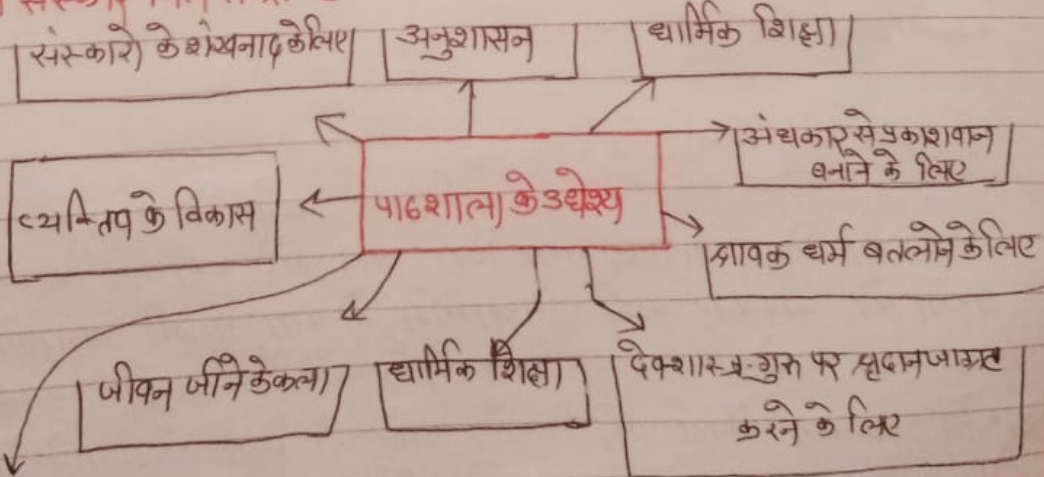 संस्कारो के शंखनाद के लिए
अनुशासन
धार्मिक शिक्षा
अंधकार से प्रकाशवान
बनाने के लिए
व्यक्तिप के विकास
पाठशाला के उधेश्य
श्रावक धर्म बतलाने के लिए
जीवन जीने के कला
धार्मिक शिक्षा
देवशास्त्र-गुरु पर श्रृदान जाग्रत
करने के लिए